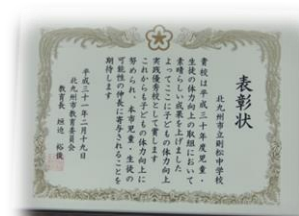 表彰状
北九州市立則松中学校
貴校は平成三十年度児童・
生徒の体力向上の取組において
素晴らしい成果を上げました
よってここに子どもの体力向上
実践優秀校として賞します
これからも子どもの体力向上に
努められ、本市児童・生徒の
可能性の伸長に寄与されることを
期待します
平成三十一年二月十九日
北九州市教育委員会
教育長 垣迫裕俊